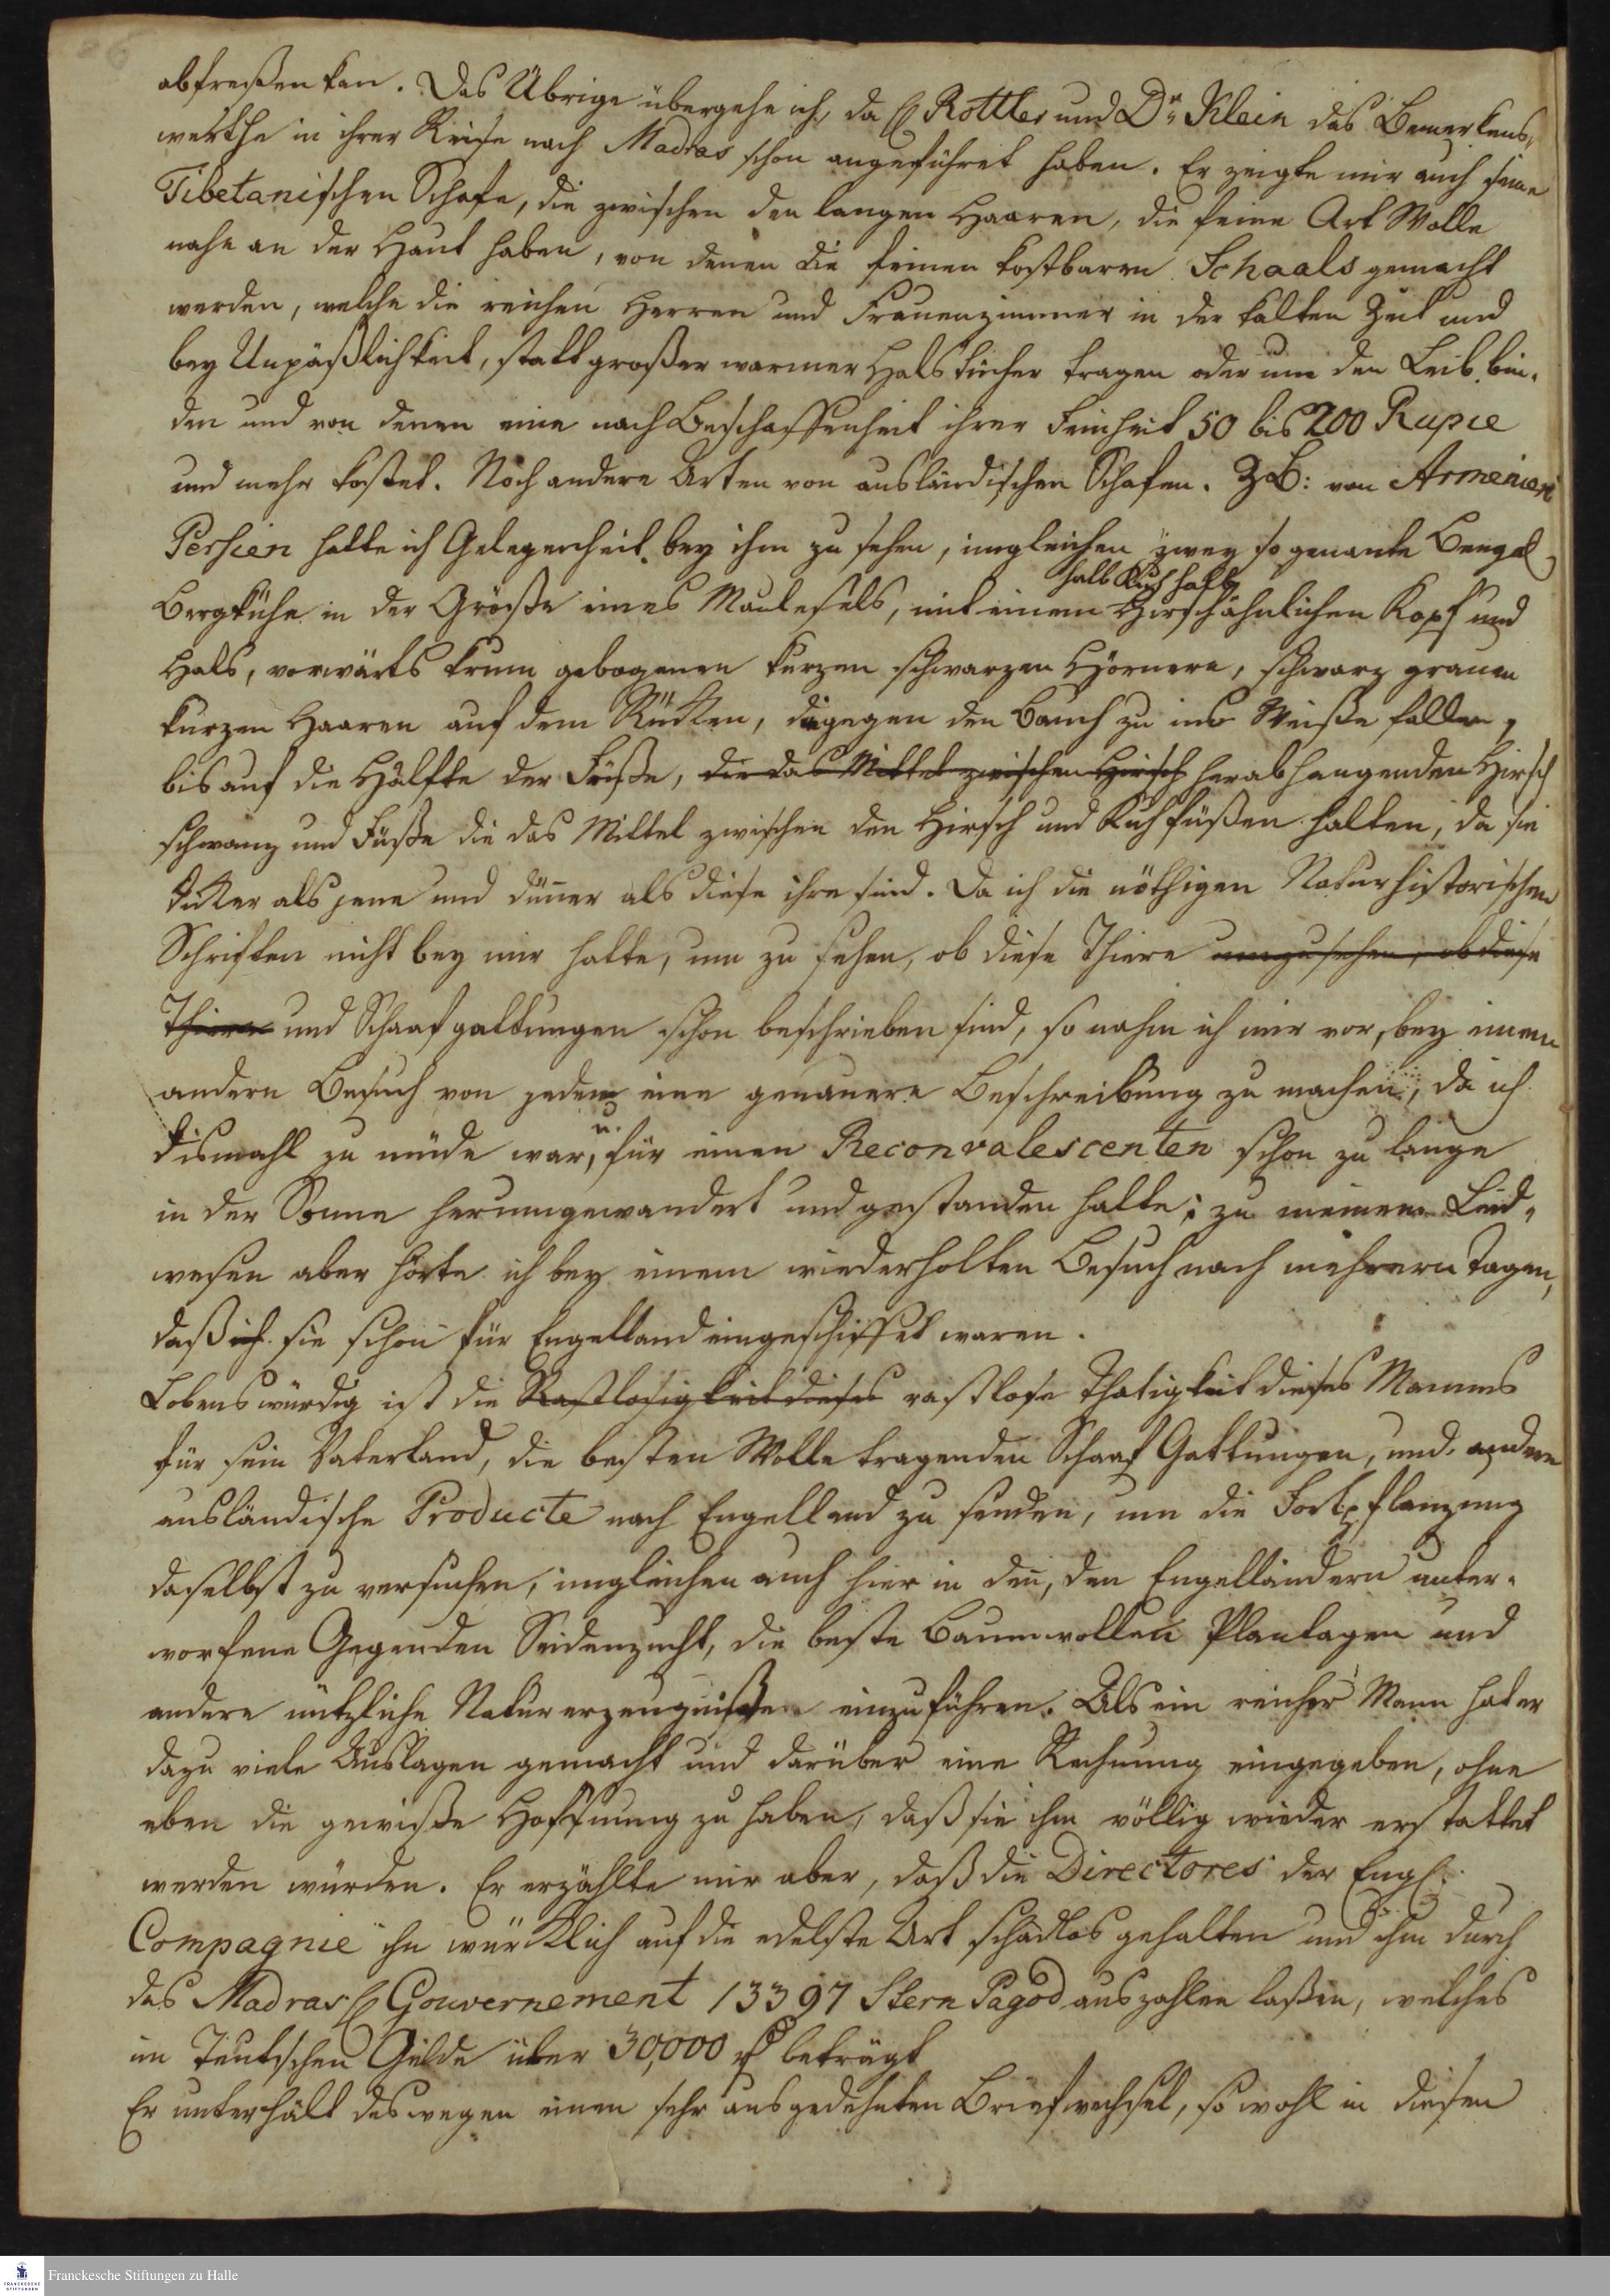 abfreßen kan. Das Übrige übergehe ich, da H Rottler und Dr. Klein das Bemerkens-
werthe in ihrer Reise nach Madras schon angeführet haben. Er zeigte mir auch seine
Tibetanischen Schafe, die zwischen den langen Haaren, die feine Art Wolle
nahe an der Haut haben, von denen die feinen kostbaren Schaals gemacht
werden, welche die reichen Herren und Frauenzimmer in der kalten Zeit und
bey Unpäßlichkeit, statt großer warmer Halstücher tragen oder um den Leib bin-
den und von denen eine nach Beschaffenheit ihrer Feinheit 50 bis 200 Rupie
und mehr kostet. Noch andere Arten von ausländischen Schafen. ZB: von Armenien
Persien hatte ich Gelegenheit bey ihm zu sehen, imgleichen zwey so genante Bengal
halb Kuh halb
Bergkühe in der Größe eines Maulesels, mit einem Hirschähnlichen Kopf und
Hals, vorwärts krum gebogenen kurzen schwarzen Hörnern, schwarz grauen
kurzen Haaren auf dem Rücken, die gegen den Bauch zu ins Weiße fallen,
bis auf die Hälfte der Füße, die das Mittel zwischen Hirsch herabhangenden Hirsch
schwanz und Füße die das Mittel zwischen den Hirsch und Kuhfüßen halten, da sie
dicker als jene und dünner als diese ihre sind. Da ich die nöthigen Naturhistorischen
Schriften nicht bey mir hatte, um zu sehen, ob diese Thiere um zu sehen, ob diese
Thiere und Schaafgattungen schon beschrieben sind, so nahm ich mir vor, bey einem
andern Besuch von jedem eine genauere Beschreibung zu machen, da ich
u.
dismahl zu müde war, für einen Reconvalescenten schon zu lange
in der Sonne herumgewandert und gestanden hatte; zu meinem Leid-
wesen aber hörte ich bey einem wiederholten Besuch nach mehrern Tagen,
daß ich sie schon für Engelland eingeschiffet waren.
Lobenswürdig ist die Rastlosigkeit dieses rastlose Thätigkeit dieses Mannes
für sein Vaterland, die besten Wolle tragenden Schaaf Gattungen, und andere
ausländische Producte nach Engelland zu senden, um die Fortpflanzung
daselbst zu versuchen, imgleichen auch hier in den, den Engelländern unter-
worfene Gegenden Seidenzucht, die beste Baumwollen Plantagen und
andere nützliche Naturerzeugniße einzuführen. Als ein reicher Mann hat er
dazu viele Auslagen gemacht und darüber eine Rechnung eingegeben, ohne
eben die gewiße Hoffnung zu haben, daß sie ihm völlig wieder erstattet
werden würden. Er erzählte mir aber, daß die Directores der Engl.
Compagnie ihn würklich auf die edelste Art schadlos gehalten und ihm durch
das Madras Gouvernement 13397 Stern Pagod auszahlen laßen, welches
im Teutschen Gelde über 30,000 rt beträgt
Er unterhält deswegen einen sehr ausgedehnten Briefwechsel, so wohl in diesen
Franckesche Stiftungen zu Halle